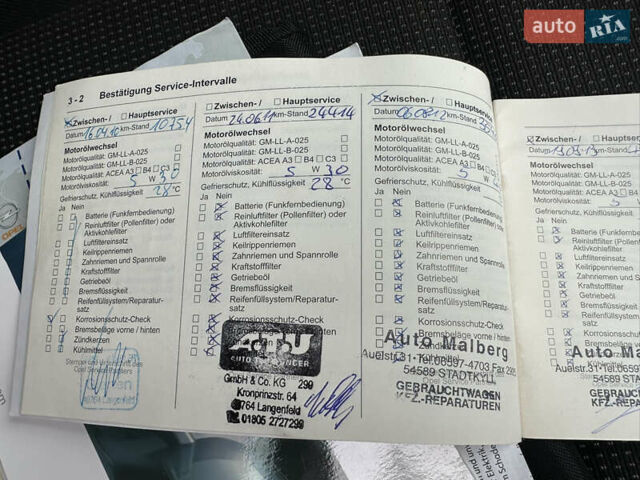 auto RIA.com
3 - 2 Bestätigung Service-Intervalle
Zwischen- / Hauptservice
Datum 16.04.10 km-Stand 10754
Motorölwechsel
Motorölqualität: GM-LL-A-025
Motorölqualität: GM-LL-B-025
Motorölqualität: ACEA A3 B4 C3
Motorölviskosität: 5 W 30
Gefrierschutz, Kühlflüssigkeit 28 °C
Ja Nein
Batterie (Funkfernbedienung)
Reinluftfilter (Pollenfilter) oder
Aktivkohlefilter
Luftfiltereinsatz
Keilrippenriemen
Zahnriemen und Spannrolle
Kraftstofffilter
Getriebeöl
Bremsflüssigkeit
Reifenfüllsystem/Reparatur-
satz
Korrosionsschutz-Check
Bremsbeläge vorne / hinten
Zündkerzen
Kühlmittel
Langenfeld
Zwischen- / Hauptservice
Datum 24.06.11 km-Stand 24414
Motorölwechsel
Motorölqualität: GM-LL-A-025
Motorölqualität: GM-LL-B-025
Motorölqualität: ACEA A3 B4 C3
Motorölviskosität: 5 W 30
Gefrierschutz, Kühlflüssigkeit 28 °C
Ja Nein
Batterie (Funkfernbedienung)
Reinluftfilter (Pollenfilter) oder
Aktivkohlefilter
Luftfiltereinsatz
Keilrippenriemen
Zahnriemen und Spannrolle
Kraftstofffilter
Getriebeöl
Bremsflüssigkeit
Reifenfüllsystem/Reparatur-
satz
Korrosionsschutz-Check
ATU
GmbH & Co. KG 299
Kronprinzstr. 64
40764 Langenfeld
01805 2727299
Zwischen- / Hauptservice
Datum 06.08.12 km-Stand
Motorölwechsel
Motorölqualität: GM-LL-A-025
Motorölqualität: GM-LL-B-025
Motorölqualität: ACEA A3 B4
Motorölviskosität: 5 W
Gefrierschutz, Kühlflüssigkeit
Ja Nein
Batterie (Funkfernbedienung)
Reinluftfilter (Pollenfilter) oder
Aktivkohlefilter
Luftfiltereinsatz
Keilrippenriemen
Zahnriemen und Spannrolle
Kraftstofffilter
Getriebeöl
Bremsflüssigkeit
Reifenfüllsystem/Reparatur-
satz
Korrosionsschutz-Check
Bremsbeläge vorne / hinten
Auto Malberg
Auelstr.31-Tel.06597-4703
54589 STADTKYLL
GEBRAUCHTWAGEN
KFZ.-REPARATUREN
Zwischen- / Hauptservice
Motorölwechsel
Motorölqualität: GM-LL-A-025
Motorölqualität: GM-LL-B-025
Motorölqualität: ACEA A3 B4
Motorölviskosität: 5
Gefrierschutz, Kühlflüssigkeit
Ja Nein
Batterie (Funkfernbedienung)
Reinluftfilter (Pollenfilter)
Aktivkohlefilter
Luftfiltereinsatz
Keilrippenriemen
Zahnriemen und
Kraftstofffilter
Getriebeöl
Bremsflüssigkeit
Auto Malberg
54589 STADTKYLL
GEBRAUCHTWAGEN
KFZ.-REPARATUREN
OPEL